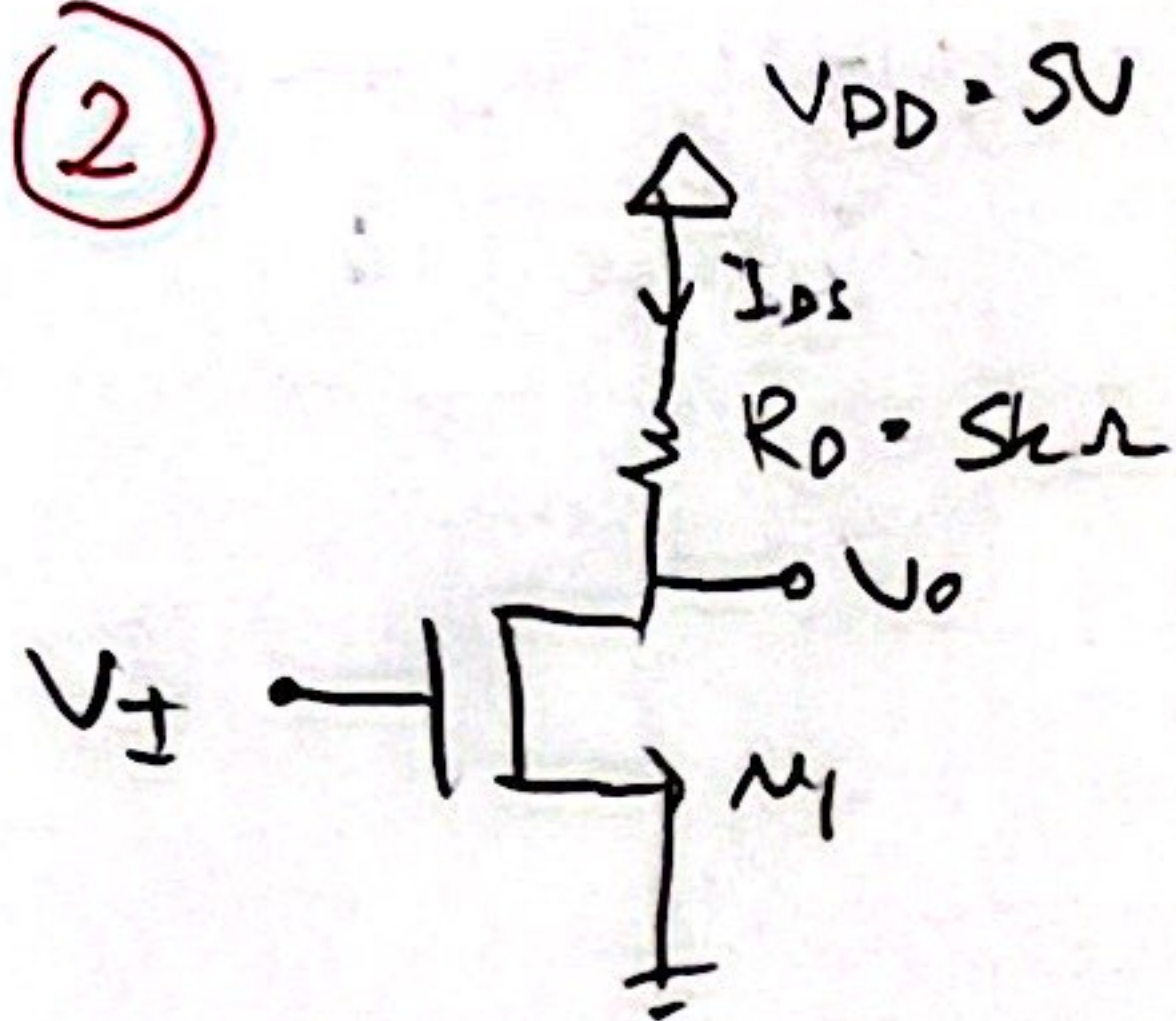 2
VDD = 5V
IDS
RD = 5kΩ
Vo
VI
M1